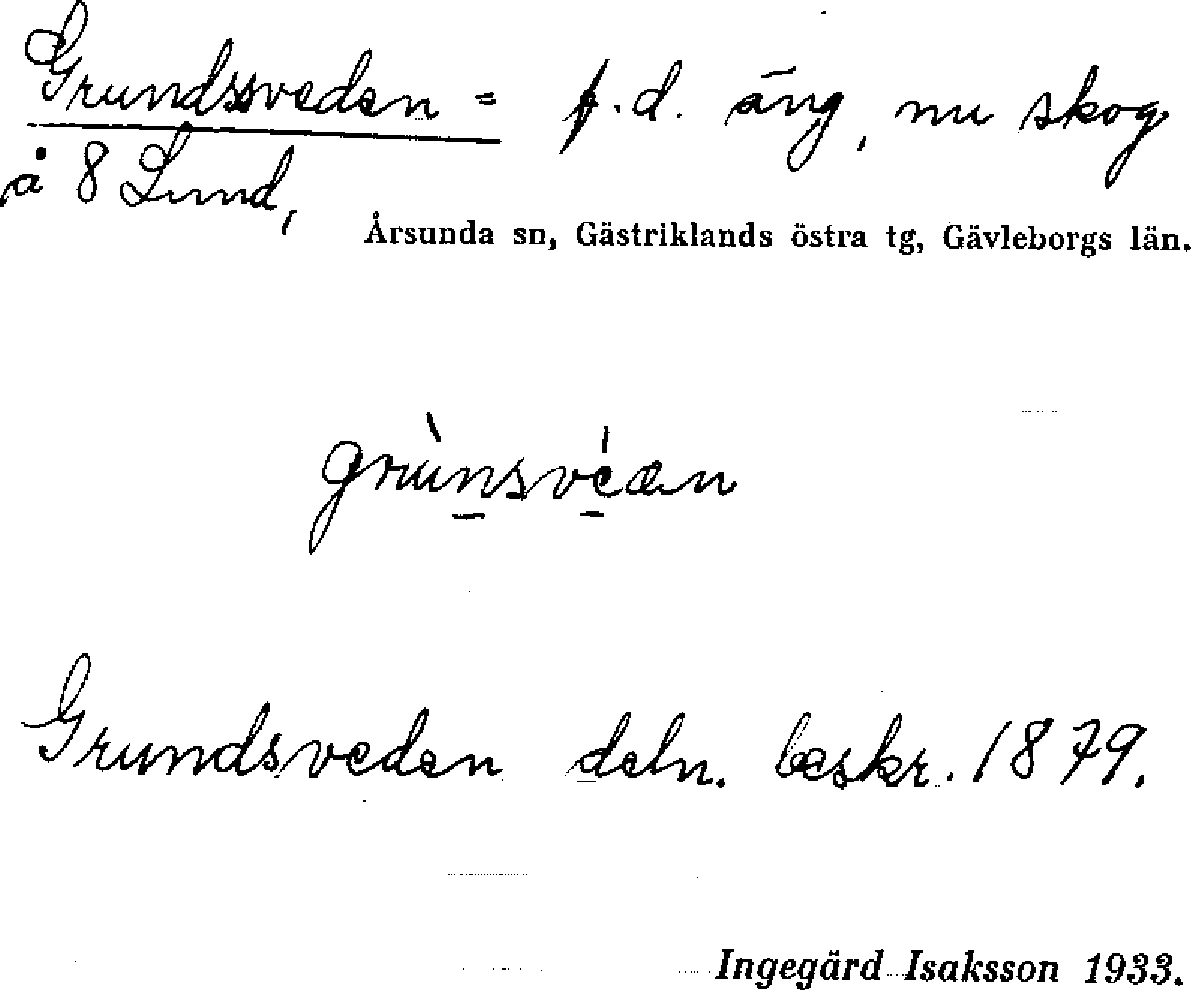 Grundssveden = f.d. äng, nu skog
å 8 Lund,
Årsunda sn, Gästriklands östra tg, Gävleborgs län.
grùnsvéden
Grundsveden deln. beskr. 1879.
Ingegärd Isaksson 1933.